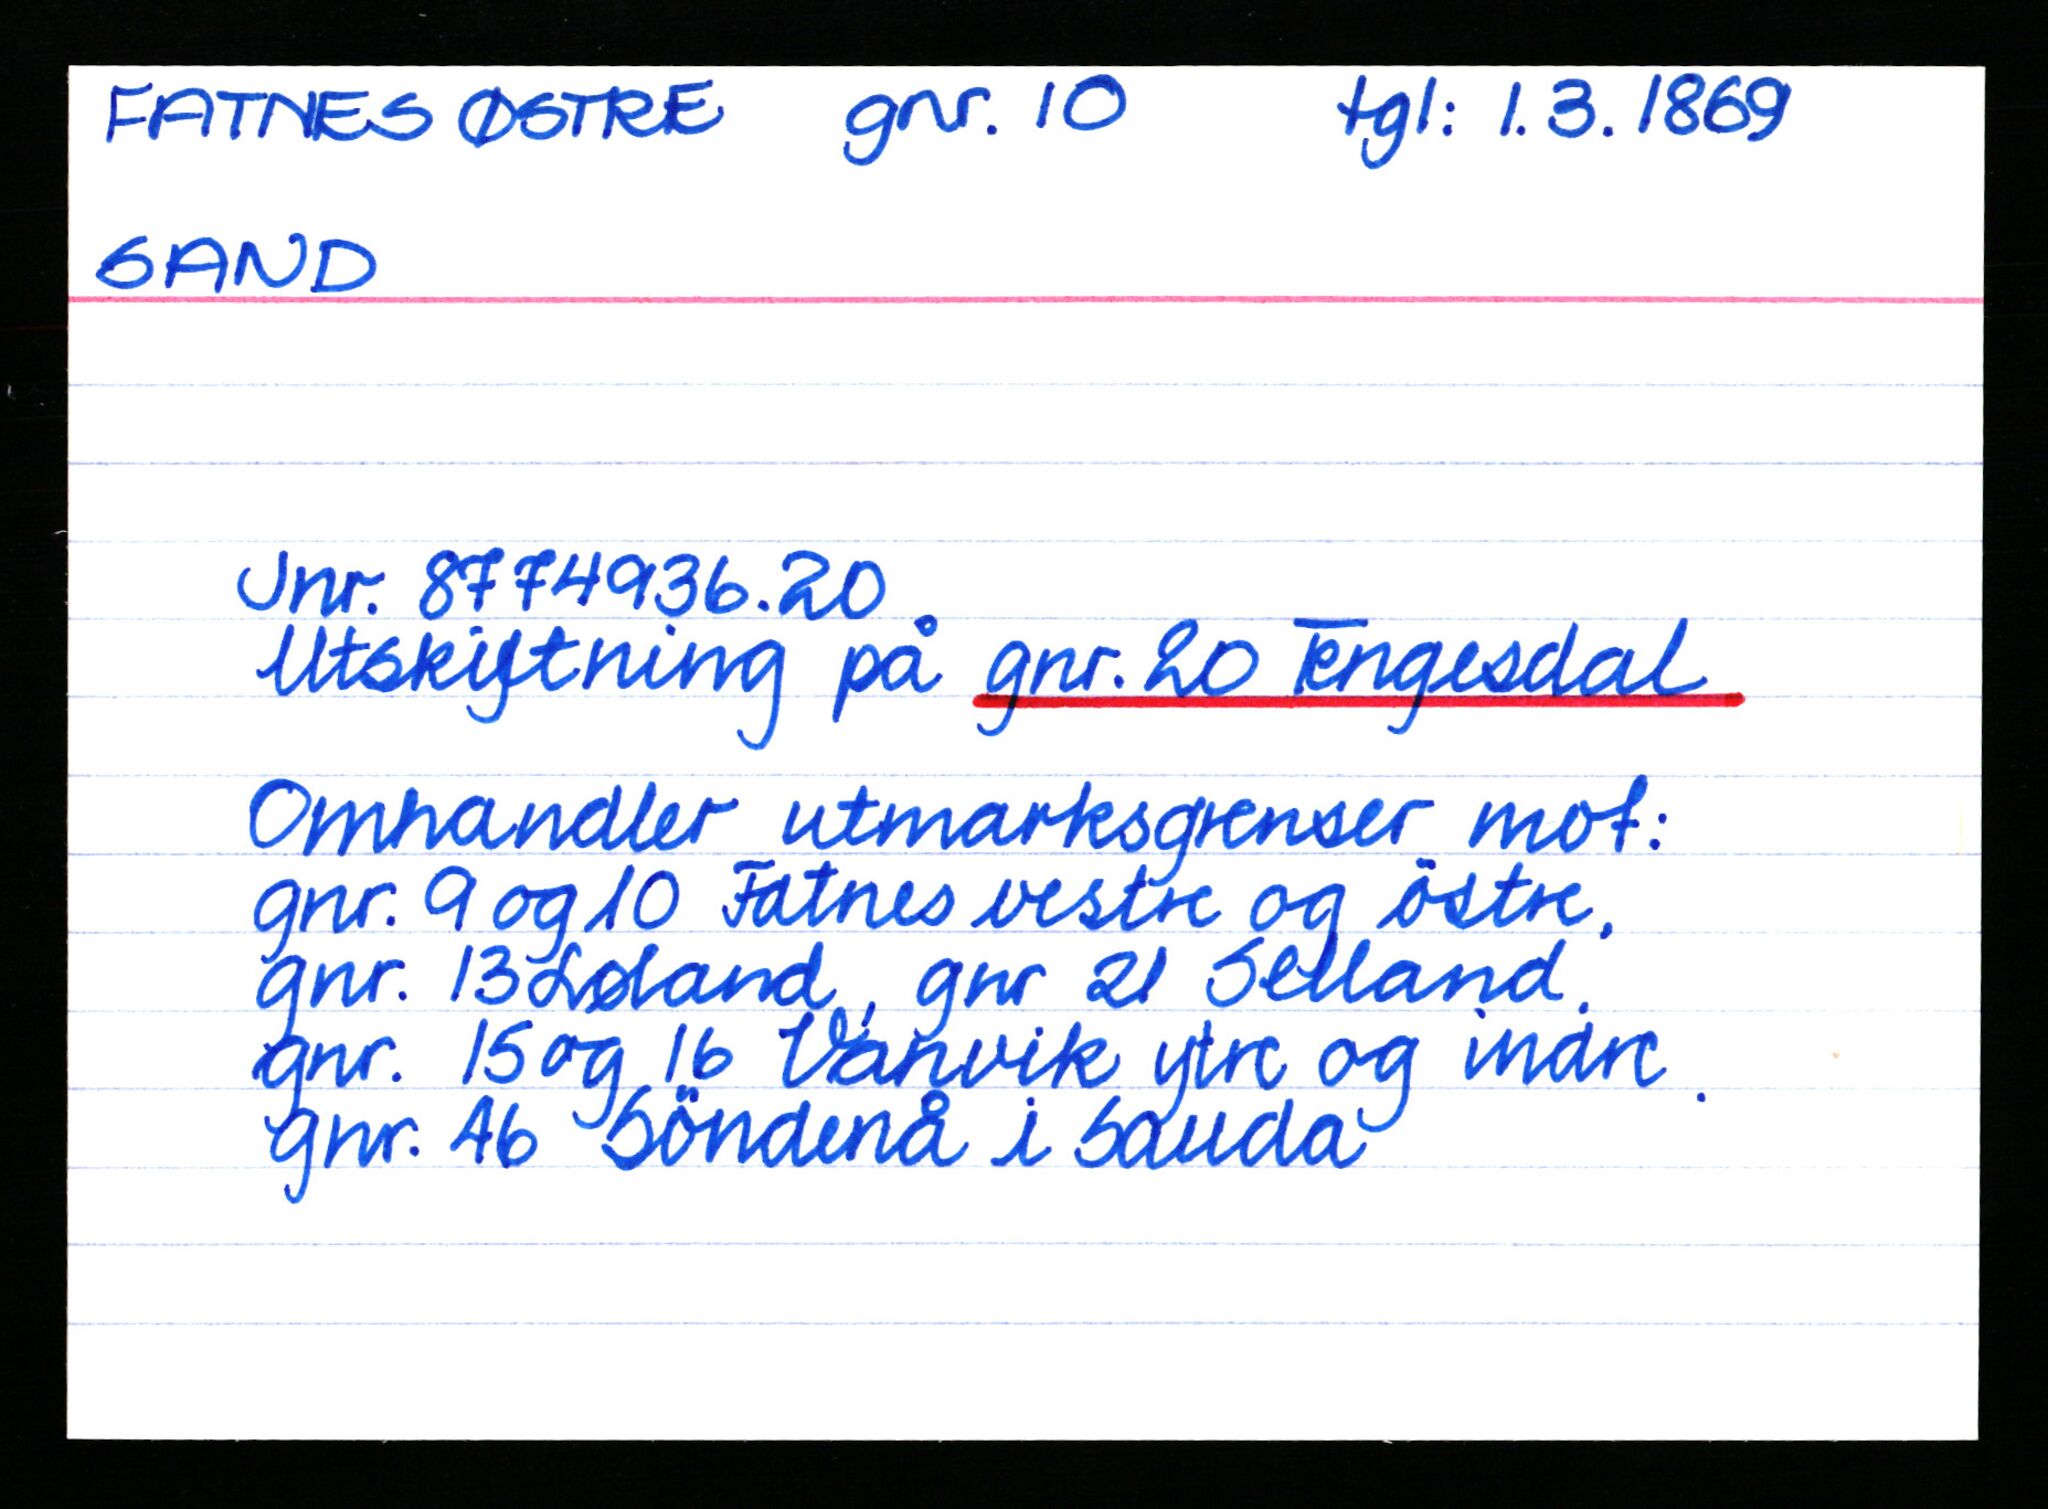 FATNES ØSTRE gnr. 10 tgl: 1.3.1869
SAND
Jnr. 8774936.20
Utskiftning på gnr. 20 Tengesdal
Omhandler utmarksgrenser mot:
gnr. 9 og 10 Fatnes vestre og östre.
gnr. 13 Løland, gnr 21 Selland.
gnr. 15 og 16 Vanvik ytre og indre.
gnr. 46 Söndenå i Sauda